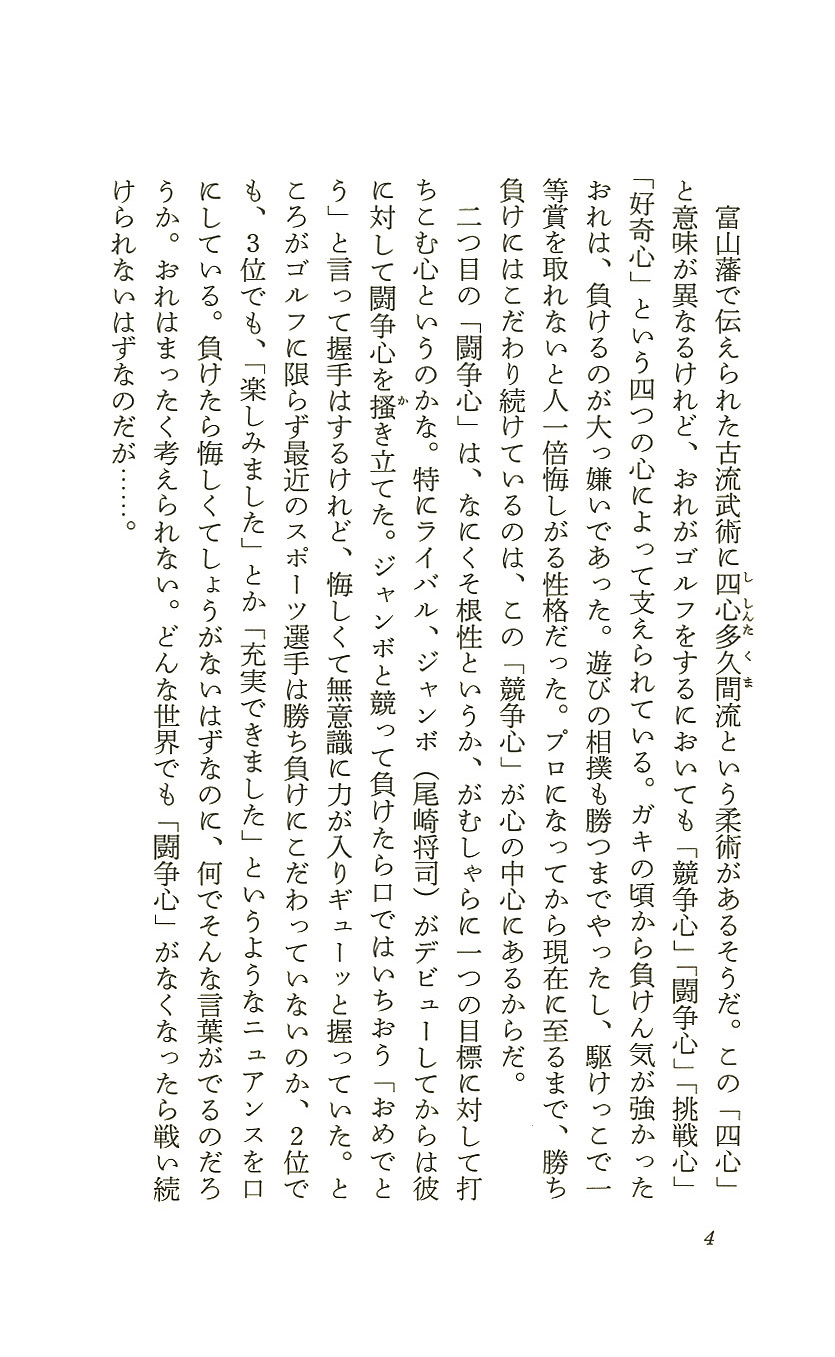 富山藩で伝えられた古流武術に四心多久間流という柔術があるそうだ。この「四心」
と意味が異なるけれど、おれがゴルフをするにおいても「競争心」「闘争心」「挑戦心」
「好奇心」という四つの心によって支えられている。ガキの頃から負けん気が強かった
おれは、負けるのが大っ嫌いであった。遊びの相撲も勝つまでやったし、駆けっこで一
等賞を取れないと人一倍悔しがる性格だった。プロになってから現在に至るまで、勝ち
負けにはこだわり続けているのは、この「競争心」が心の中心にあるからだ。
二つ目の「闘争心」は、なにくそ根性というか、がむしゃらに一つの目標に対して打
ちこむ心というのかな。特にライバル、ジャンボ（尾崎将司）がデビューしてからは彼
に対して闘争心を掻き立てた。ジャンボと競って負けたら口ではいちおう「おめでと
う」と言って握手はするけれど、悔しくて無意識に力が入りギューッと握っていた。と
ころがゴルフに限らず最近のスポーツ選手は勝ち負けにこだわっていないのか、2位で
も、3位でも、「楽しみました」とか「充実できました」というようなニュアンスを口
にしている。負けたら悔しくてしょうがないはずなのに、何でそんな言葉がでるのだろ
うか。おれはまったく考えられない。どんな世界でも「闘争心」がなくなったら戦い続
けられないはずなのだが……。
4